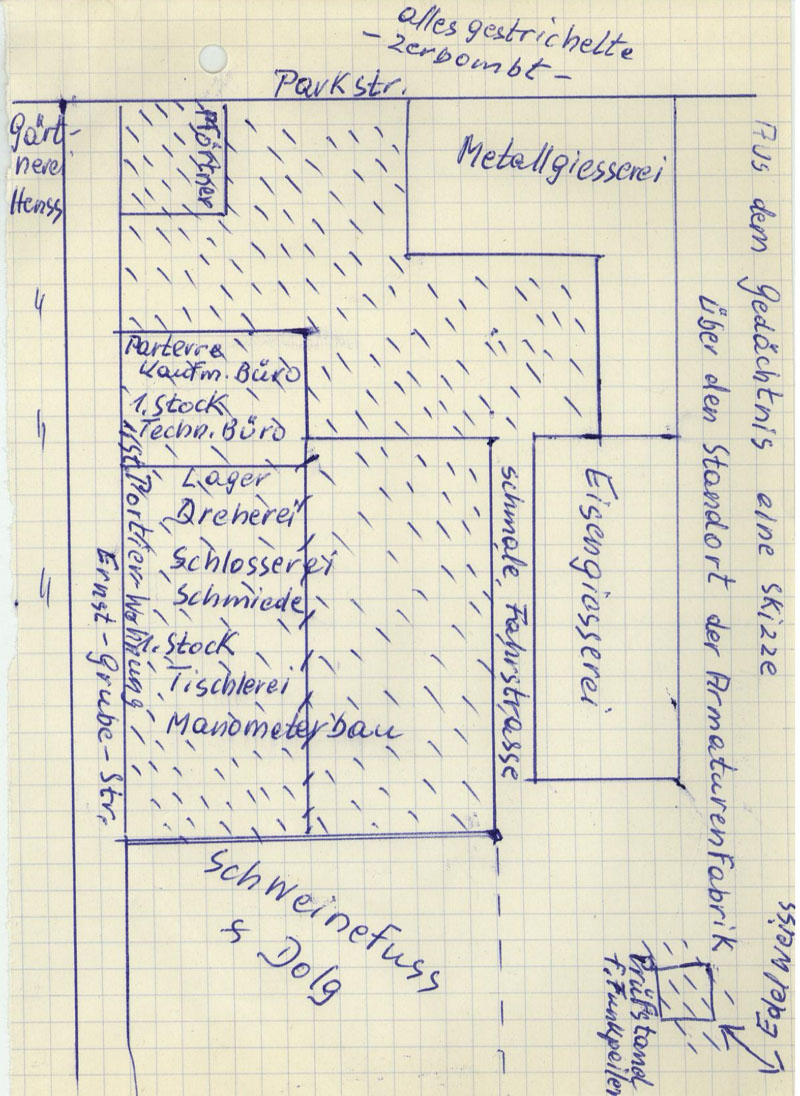 alles gestrichelte
- zerbombt -
Parkstr.
Gärt-
nerei
Henss
Pförtner
Metallgiesserei
Aus dem Gedächtnis eine Skizze
über den Standort der Armaturenfabrik
Parterre
Kaufm. Büro
1. Stock
Techn. Büro
1. St. Portier-Wohnung
Lager
Dreherei
Schlosserei
Schmiede
1. Stock
Tischlerei
Manometerbau
schmale Fahrstrasse
Eisengiesserei
Ernst-Grube-Str.
Schweinefuss
& Dolg
Prüfstand
f. Funkpeiler
Edelweiss